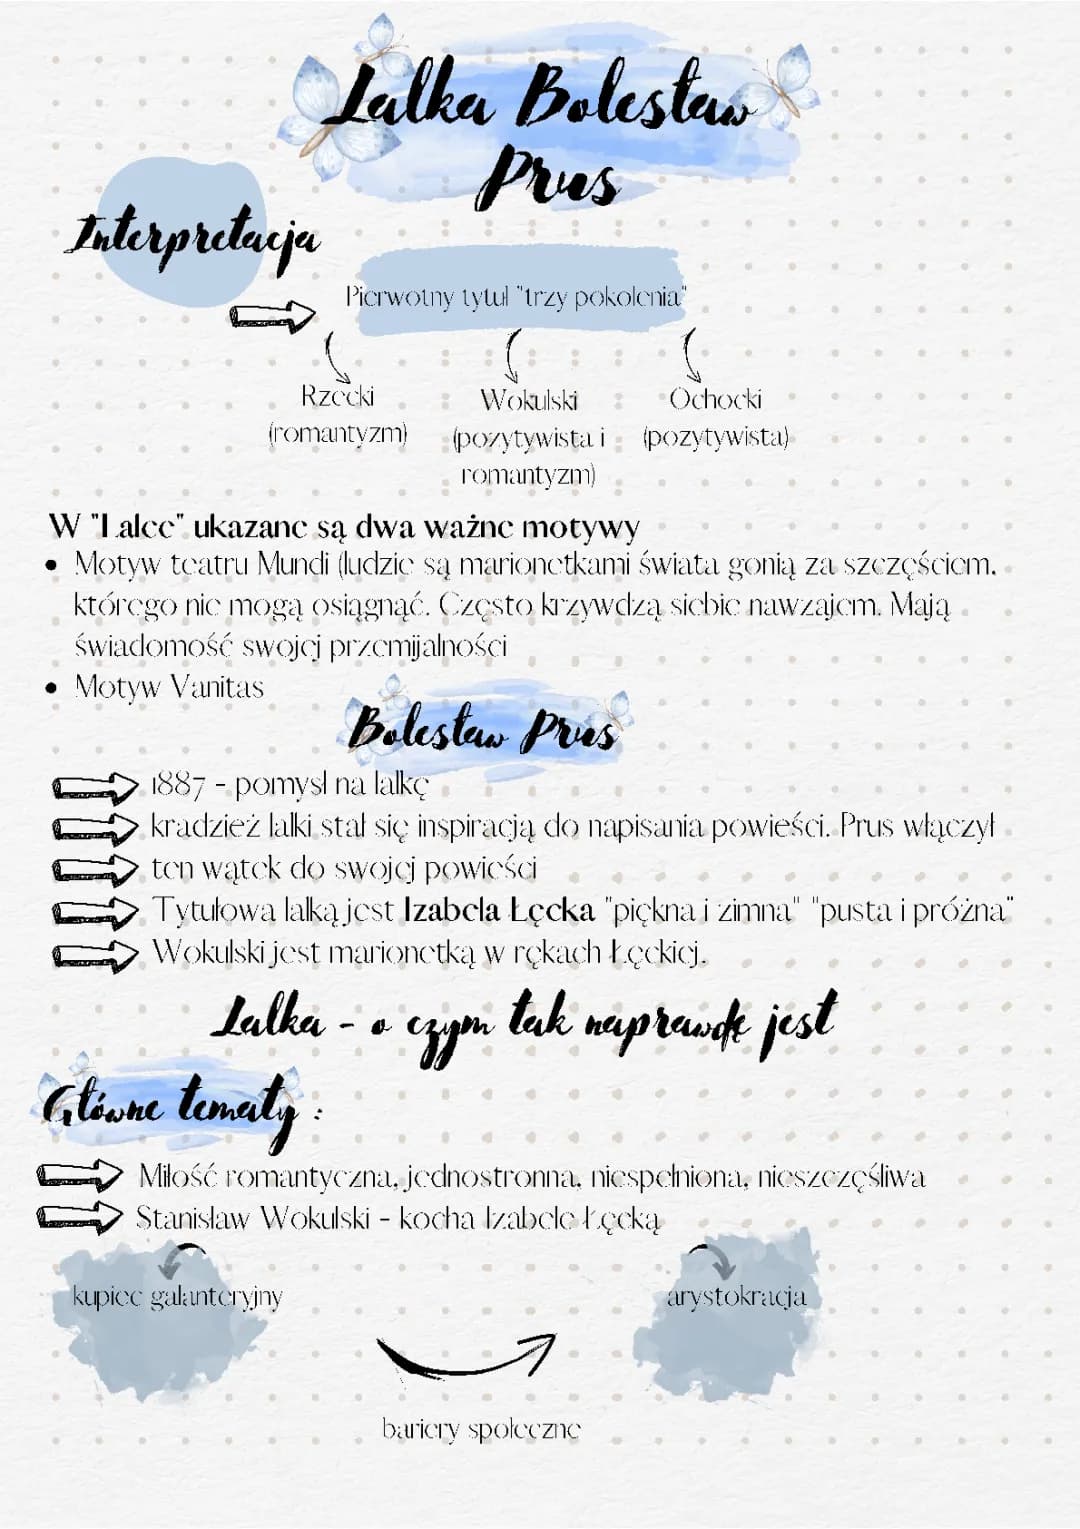 Lalka Bolesław
Prus
Interpretacja
Pierwotny tytuł "trzy pokolenia"
Rzecki
(romantyzm)
Wokulski
(pozytywista i
romantyzm)
Ochocki
(pozytywista)
W "Lalce" ukazane są dwa ważne motywy
• Motyw teatru Mundi (ludzie są marionetkami świata gonią za szczęściem,
którego nie mogą osiągnąć. Często krzywdzą siebie nawzajem. Mają
świadomość swojej przemijalności
• Motyw Vanitas
Bolesław Prus
1887 - pomysł na lalkę
kradzież lalki stał się inspiracją do napisania powieści. Prus włączył
ten wątek do swojej powieści
Tytułowa lalką jest Izabela Łęcka "piękna i zimna" "pusta i próżna"
Wokulski jest marionetką w rękach Łęckiej.
Lalka - o czym tak naprawdę jest
Główne tematy :
Miłość romantyczna, jednostronna, niespełniona, nieszczęśliwa
Stanisław Wokulski - kocha Izabele Łęcką
kupiec galanteryjny
arystokracja
bariery społeczne